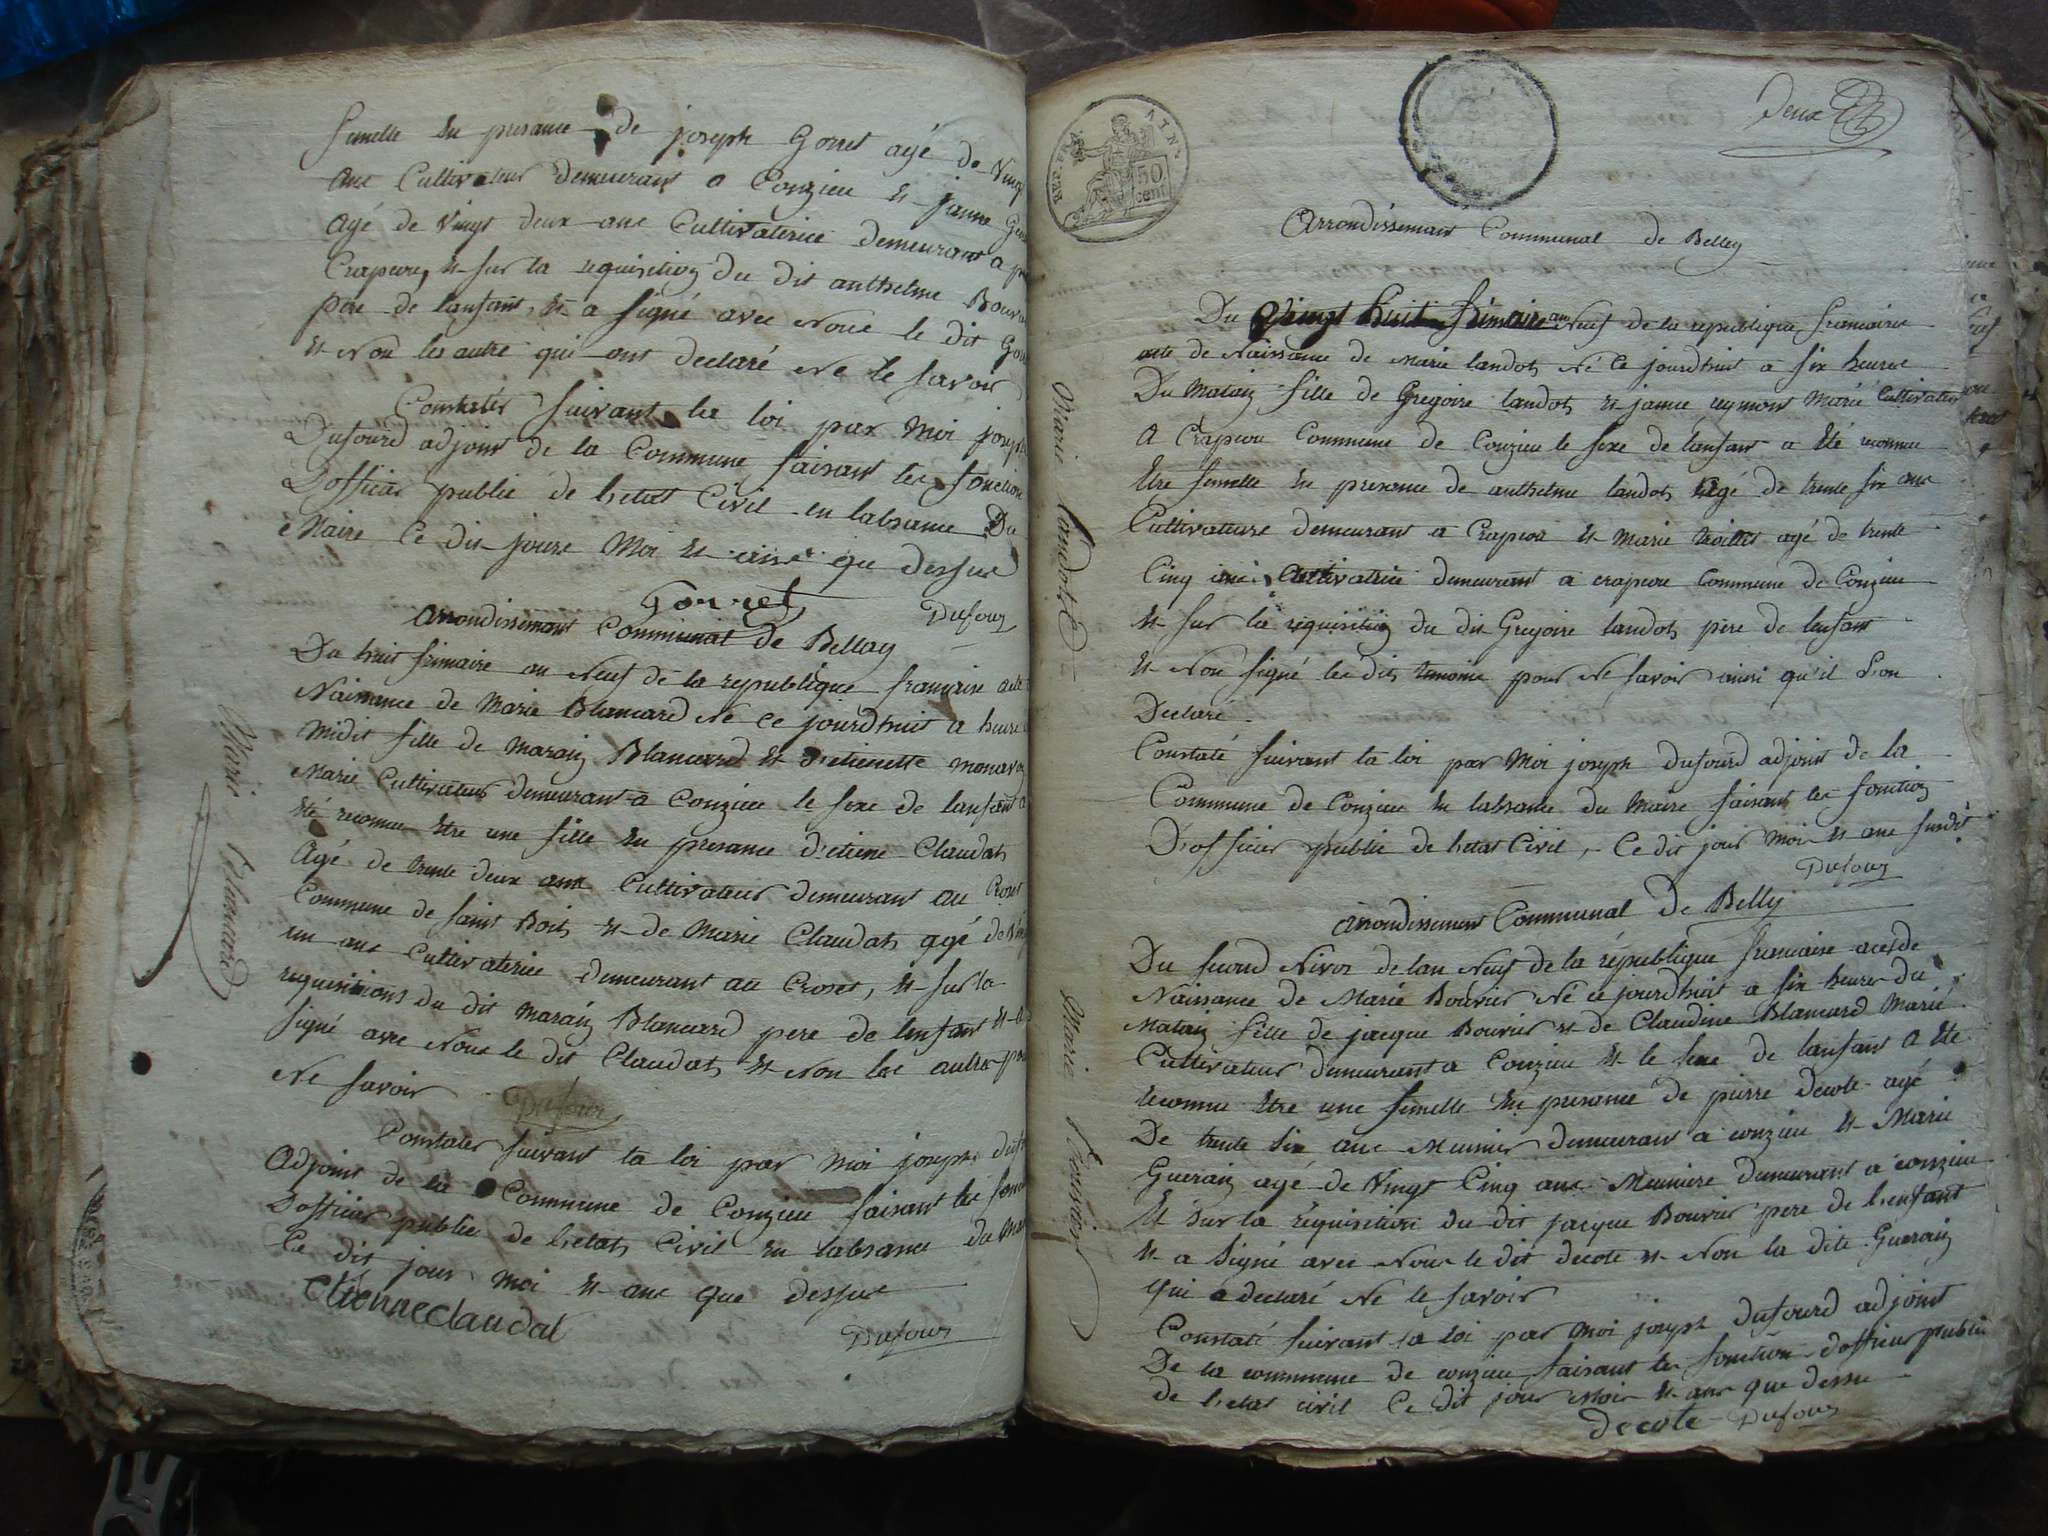 femelle en presance de joseph Gorret agé de Vingt
ans Cultivateur demeurant a Conzieu et janne
agé de Vingt deux ans Cultivaterice demeurant a
Crapeou, et sur la requisition du dit anthelme
pere de lanfant, et a signé avec Nous le dit
et Non les autre qui ont declaré Ne le savoir
Constater suivant la loi par Moi joseph
Dufourd adjoint de la Commune faisant les fonction
Dofficier public de letat Civil en labsance Du
Maire Ce dit joure Moi et que dessus
Gorret
Dufour
arrondissement Communal de Bellay
Du huit frimaire an Neuf de la republique francaise acte
Naissance de Marie Blancard Né ce jourdhuit a heure
midit fille de Marain Blancard et detienette
Marié Cultivateur demeurant a Conzieu le sexe de lanfant a
été reconnu etre une fille en presance detiene Claudat
Agé de trente deux ans Cultivateur demeurant au Croset
Commune de saint Boit et de Marie Claudat agé de
un ans Cultivaterice demeurant au Croset, et sur la
requisitions du dit Marain Blancard pere de lenfant et a
signé avec Nous le dit Claudat et Non les autre pour
Ne savoir
Dufour
Constater suivant la loi par Moi joseph
Adjoint de la Commune de Conzieu faisant les
Dofficier public de letat Civil en labsance du
Ce dit jour Moi et ans que dessus
Etienneclaudat
Dufour
Marie Blancard
Deux
REP. FRA.
AIN
50
cent
Arrondissement Communal de Belley
Du Vingt huit frimaire an Neuf de la republique francaise
acte de Naissance de Marie landot Né ce jourdhuit a six heures
Du Matain fille de Gregoire landot et janne reymont Marié Cultivateur
A Crapeou Commune de Conzieu le sexe de lanfant a été reconnu
Etre femelle en presance de anthelme landot agé de trente six ans
Cultivateure demeurant a Crapeou et Marie agé de trente
Cinq ans Cultivatrice demeurant a crapeou Commune de Conzieu
et sur la requisition du dit Gregoire landot pere de lenfant
et Non signé les dits temoins pour Ne savoir ainsi qu'il Lon
Declaré
Constaté suivant la loi par Moi joseph Dufourd adjoint de la
Commune de Conzieu en labsance du Maire faisant les fonction
D'officier public de letat Civil, Ce dit jour moi et ans susdit
Dufour
arrondissement Communal de Belly
Du second Nivoz de lan Neuf de la république francaise acte de
Naissance de Marie Bouvier Né ce jourdhuit a six heures du
Matain fille de jacque Bouvier et de Claudine Blancard Marié
Cultivateur demeurant a Conzieu et le sexe de lanfant a été
reconnu etre une femelle en presance de pierre Decote agé
De trente six ans Meunier demeurant a conzieu et Marie
Guerain agé de Vingt Cinq ans Meuniere demeurant a conzieu
Et sur la requisition du dit jacque Bouvier pere de lenfant
et a Signé avec Nous le dit decote et Non la dite Guerain
qui a declaré Ne le savoir
Constaté suivant la loi par Moi joseph Dufourd adjoint
De la commune de conzieu faisant les fonction dofficier public
de letat civil Ce dit jour Mois et ans que dessu
Decote Dufour
Marie landot
Marie Bouvier